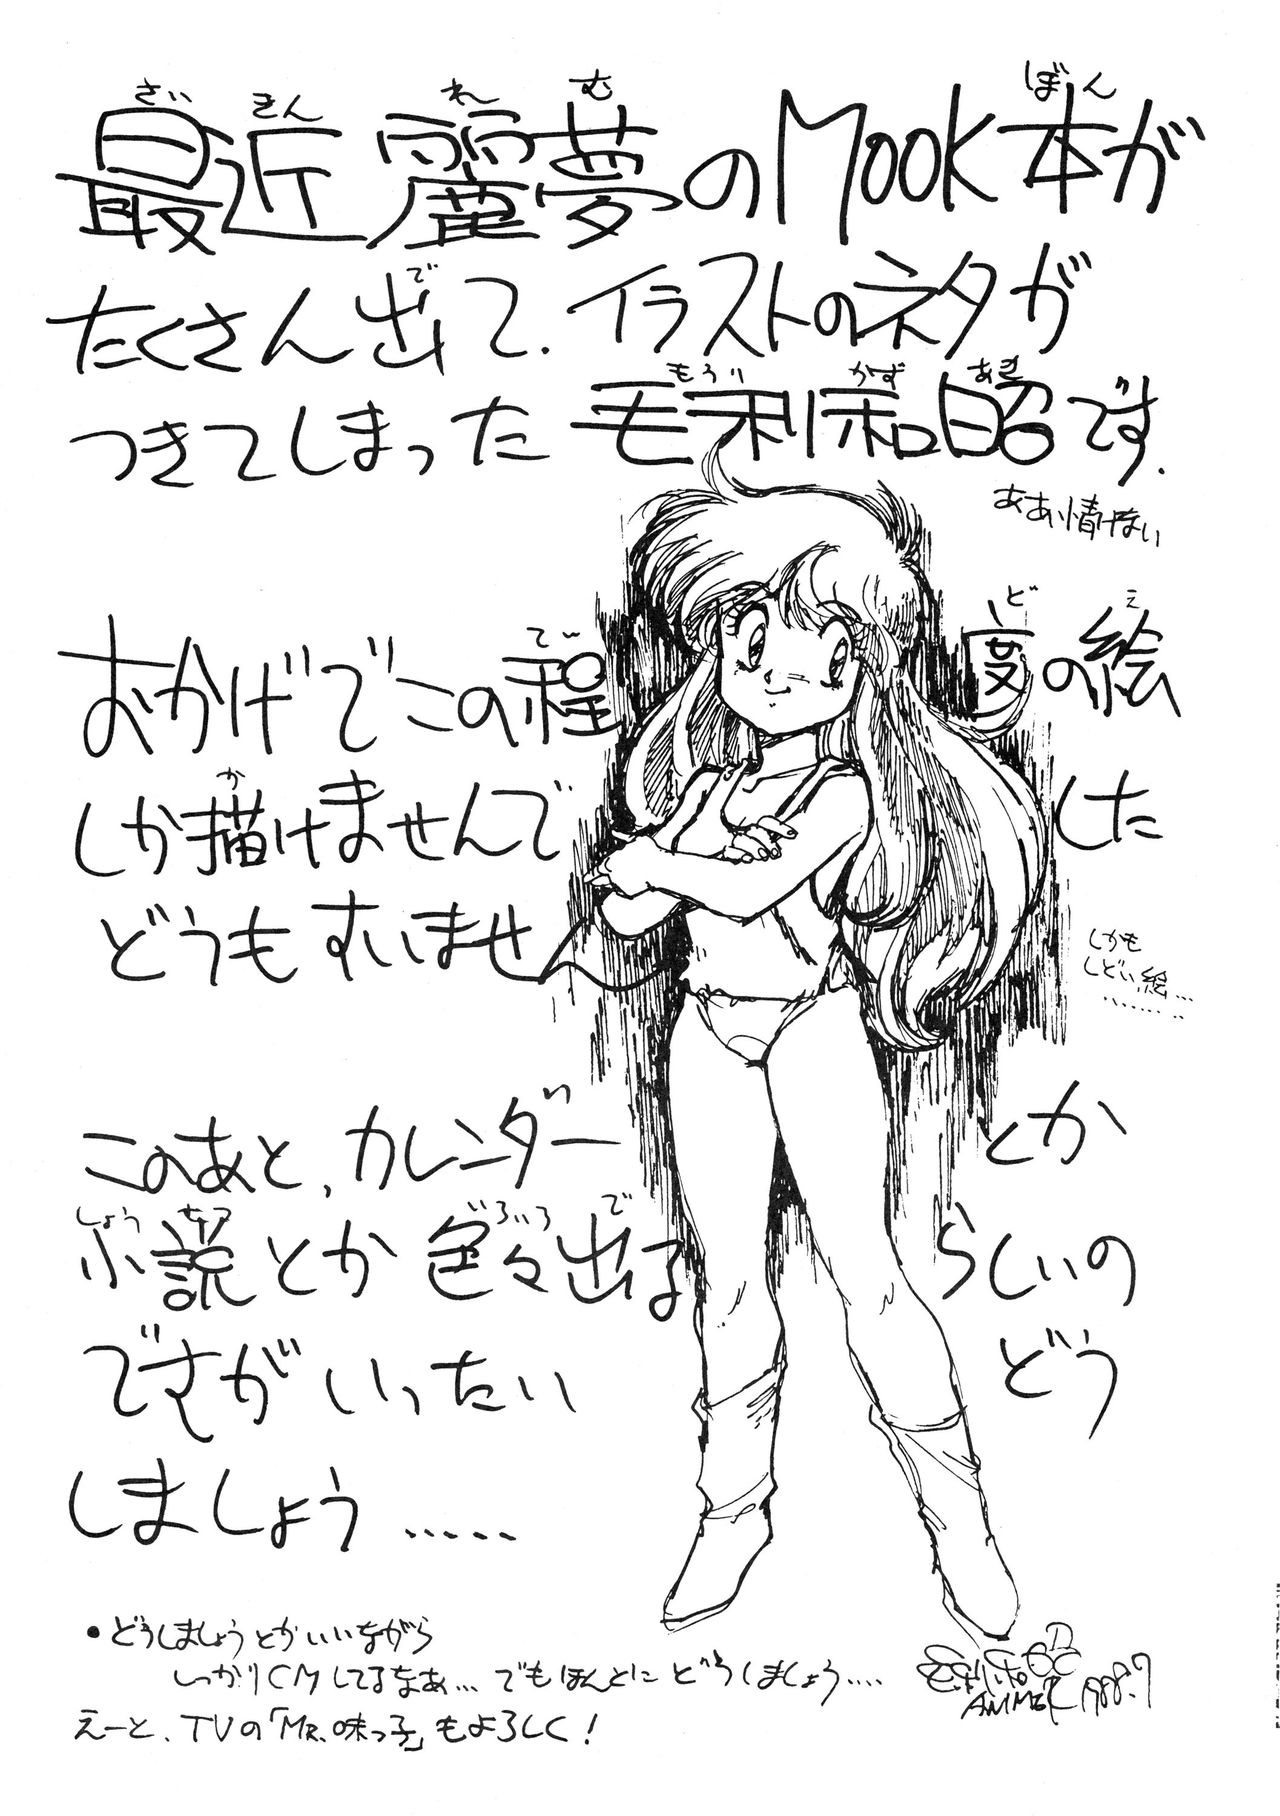 最近麗夢のMOOK本が
たくさん出て.イラストのネタが
つきてしまった 毛利和昭です.
ああ、情けない
おかげでこの程度の絵
しか描けませんでした
どうもすいませ
しかも
しどい絵...
このあと、カレンダーとか
小説とか色々出るらしいの
ですがいったいどう
しましょう .....
•どうしましょうとかいいながら
しっかりCMしてるなあ... でもほんとにどうしましょう....
えーと、TVの「MR.味っ子」もよろしく!
1988.7